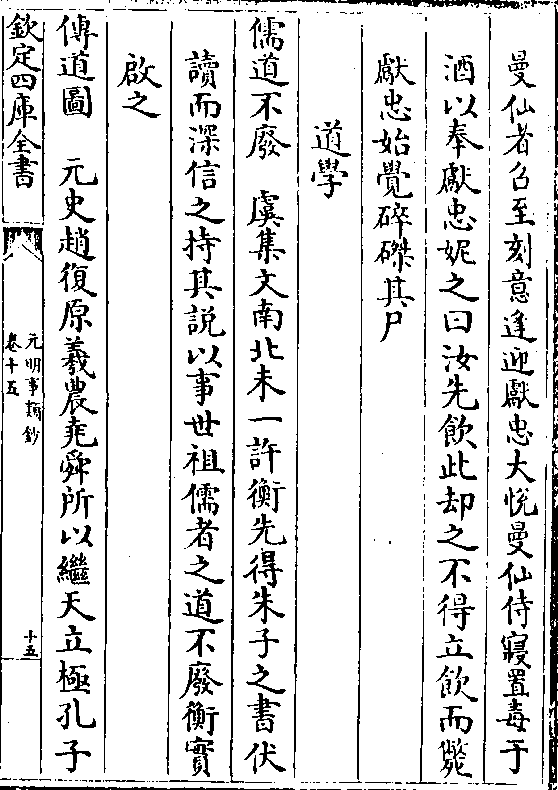 曼仙者召至刻意逢迎獻忠大悅曼仙侍寢置毒于
酒以奉獻忠妮之曰汝先飲此却之不得立飲而斃
獻忠始覺碎磔其尸
道學
儒道不廢　虞集文南北未一許衡先得朱子之書伏
讀而深信之持其説以事世祖儒者之道不廢衡實
啟之
傳道圖　元史趙復原羲農堯舜所以繼天立極孔子
欽定四庫全書
元明事類鈔
卷十五
十五